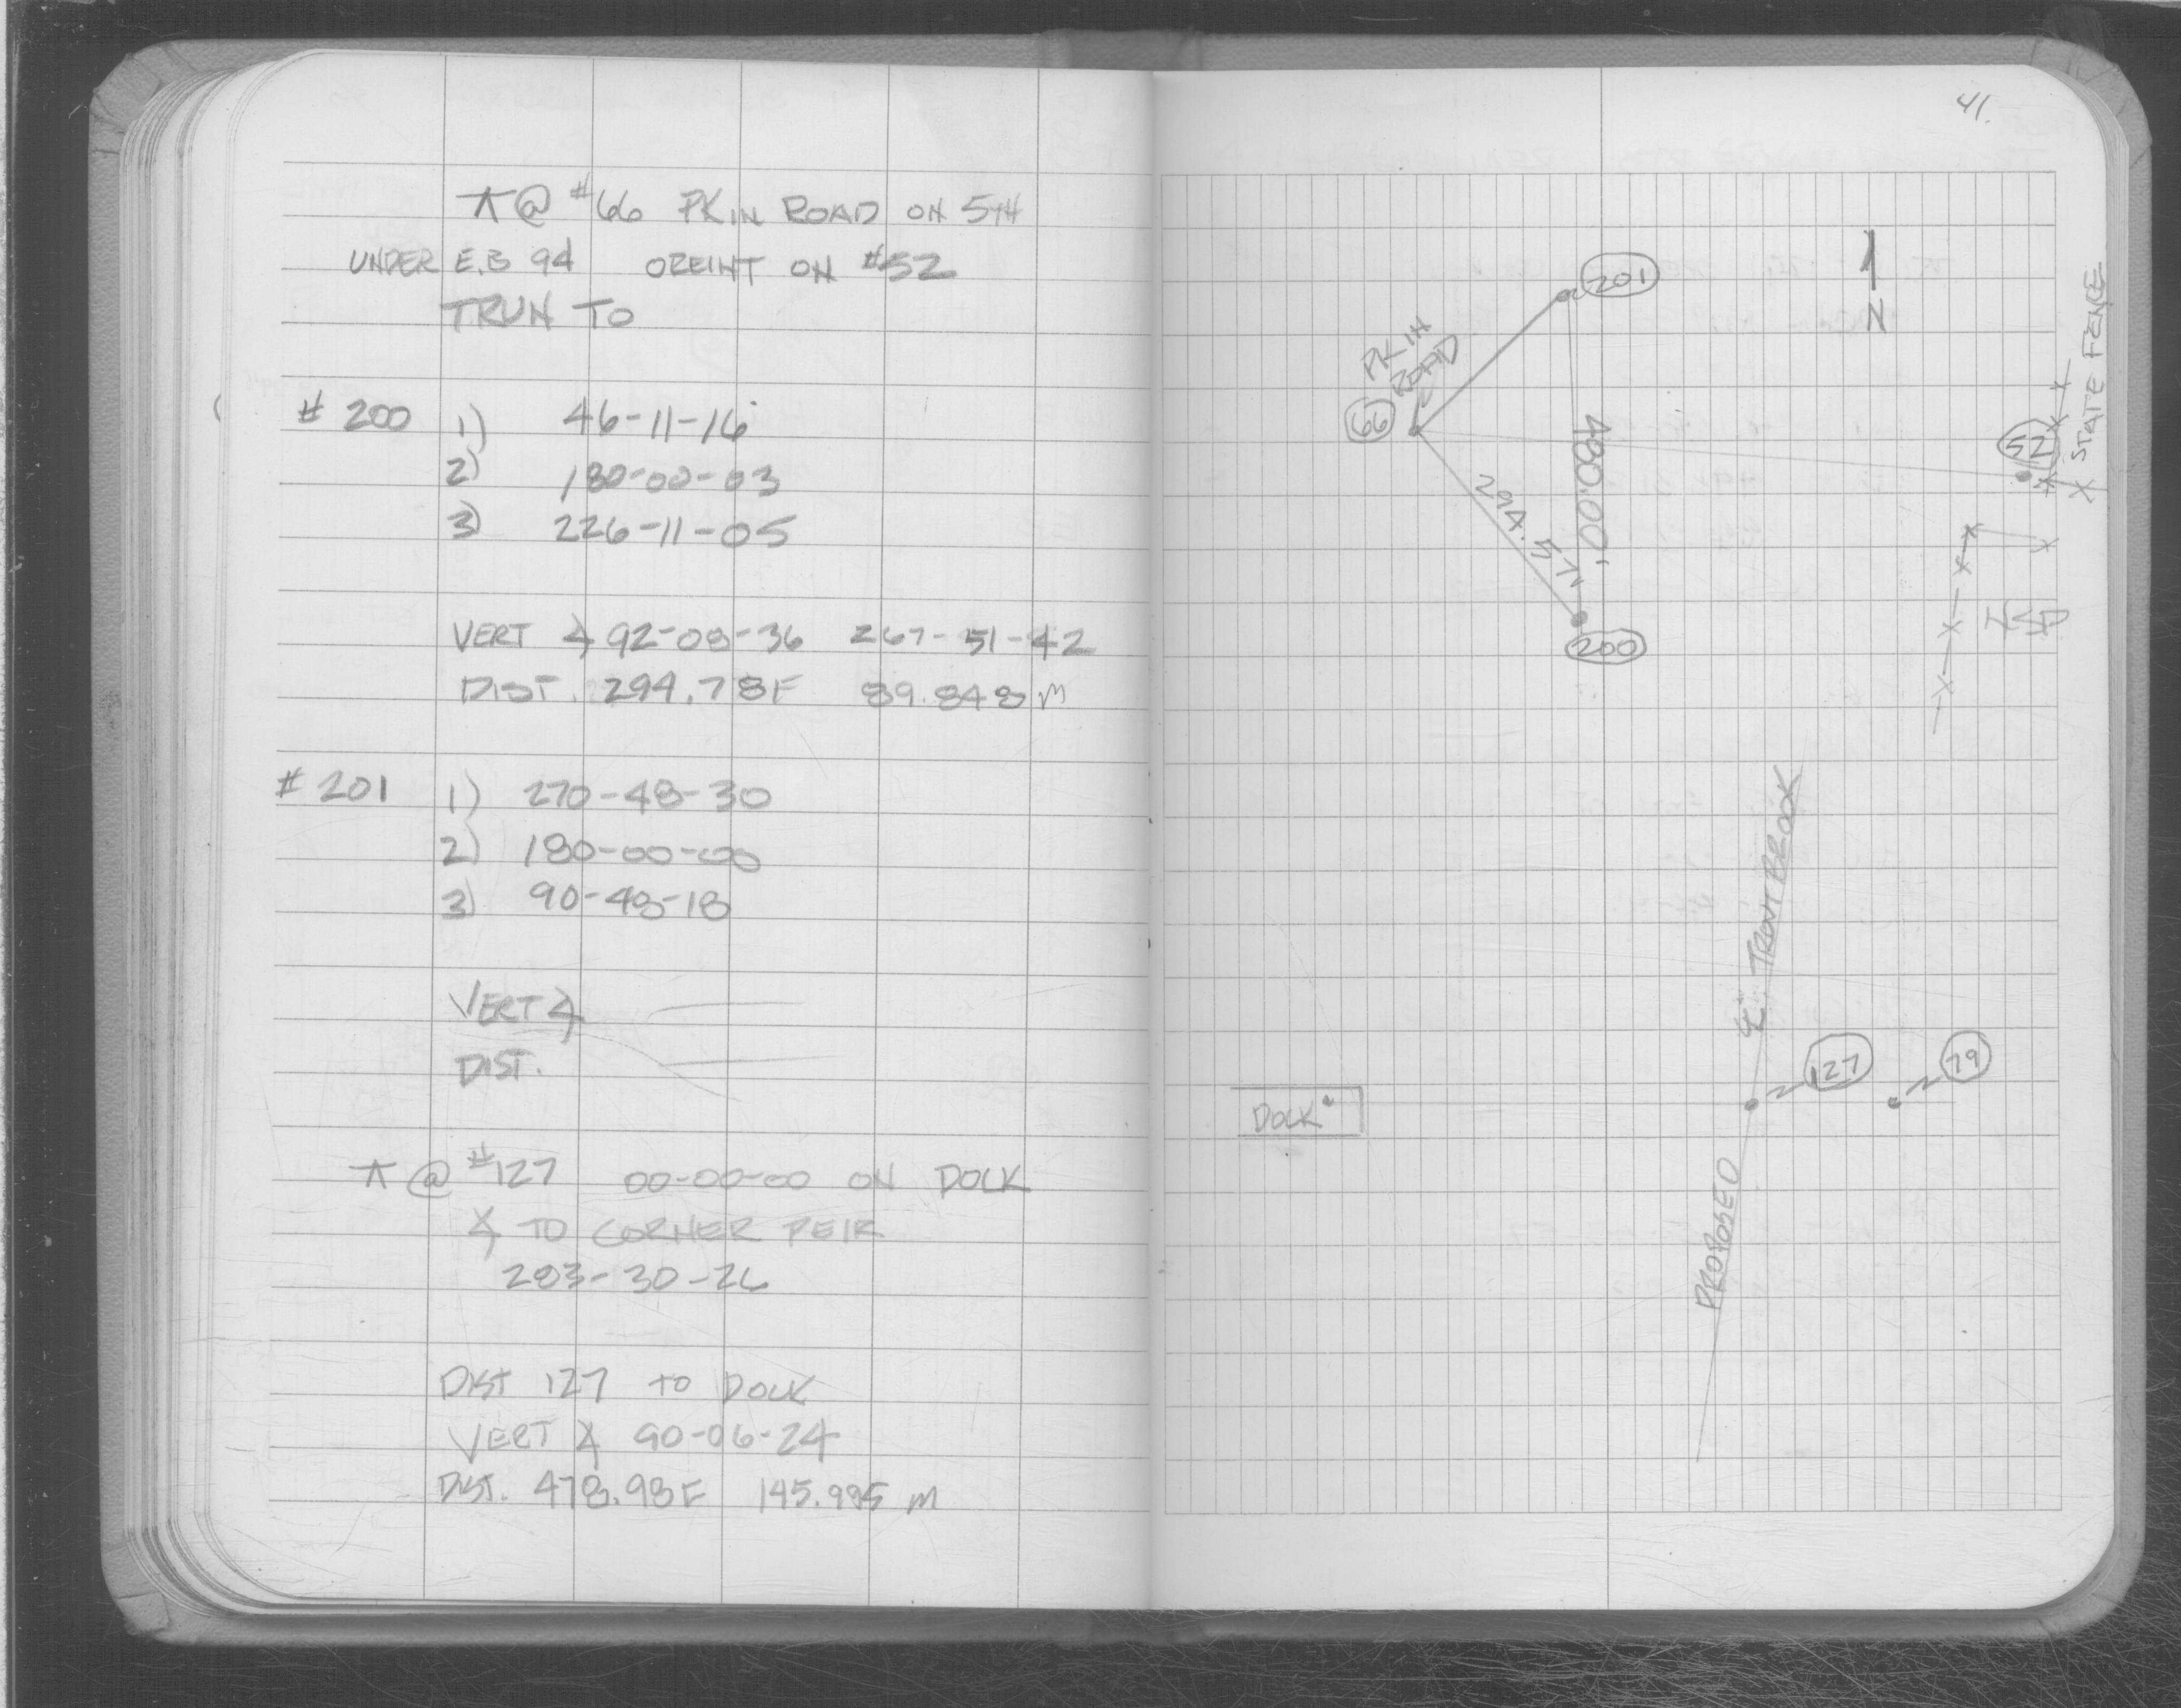 ⊼ @ #66 PK IN ROAD ON 5TH
UNDER E.B 94 OREINT ON #52
TRUN TO
# 200 1) 46-11-16
2) 180-00-03
3) 226-11-05
VERT ∡ 92-08-36 267-51-42
DIST. 294.78F 89.848 M
# 201 1) 270-48-30
2) 180-00-00
3) 90-48-18
VERT ∡
DIST.
⊼ @ #127 00-00-00 ON DOCK
∡ TO CORNER PEIR
283-30-26
DIST 127 TO DOCK
VERT ∡ 90-06-24
DIST. 478.98F 145.995 M
41.
201
N
PK IN
ROAD
66
STATE FENCE
52
400.00'
294.
200
℄ TROUT BROOK
127
79
DOCK
PROPOSED